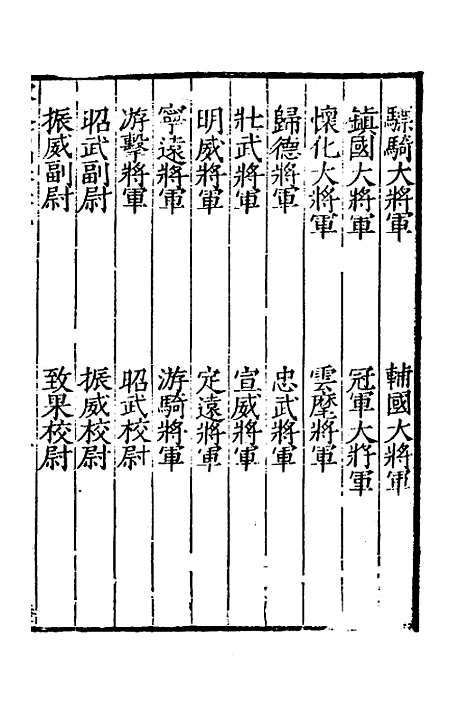 驃騎大將軍　輔國大將軍
鎮國大將軍　冠軍大將軍
懷化大將軍　雲麾將軍
歸德將軍　忠武將軍
壯武將軍　宣威將軍
明威將軍　定遠將軍
寧遠將軍　游騎將軍
游擊將軍　昭武校尉
昭武副尉　振威校尉
振威副尉　致果校尉